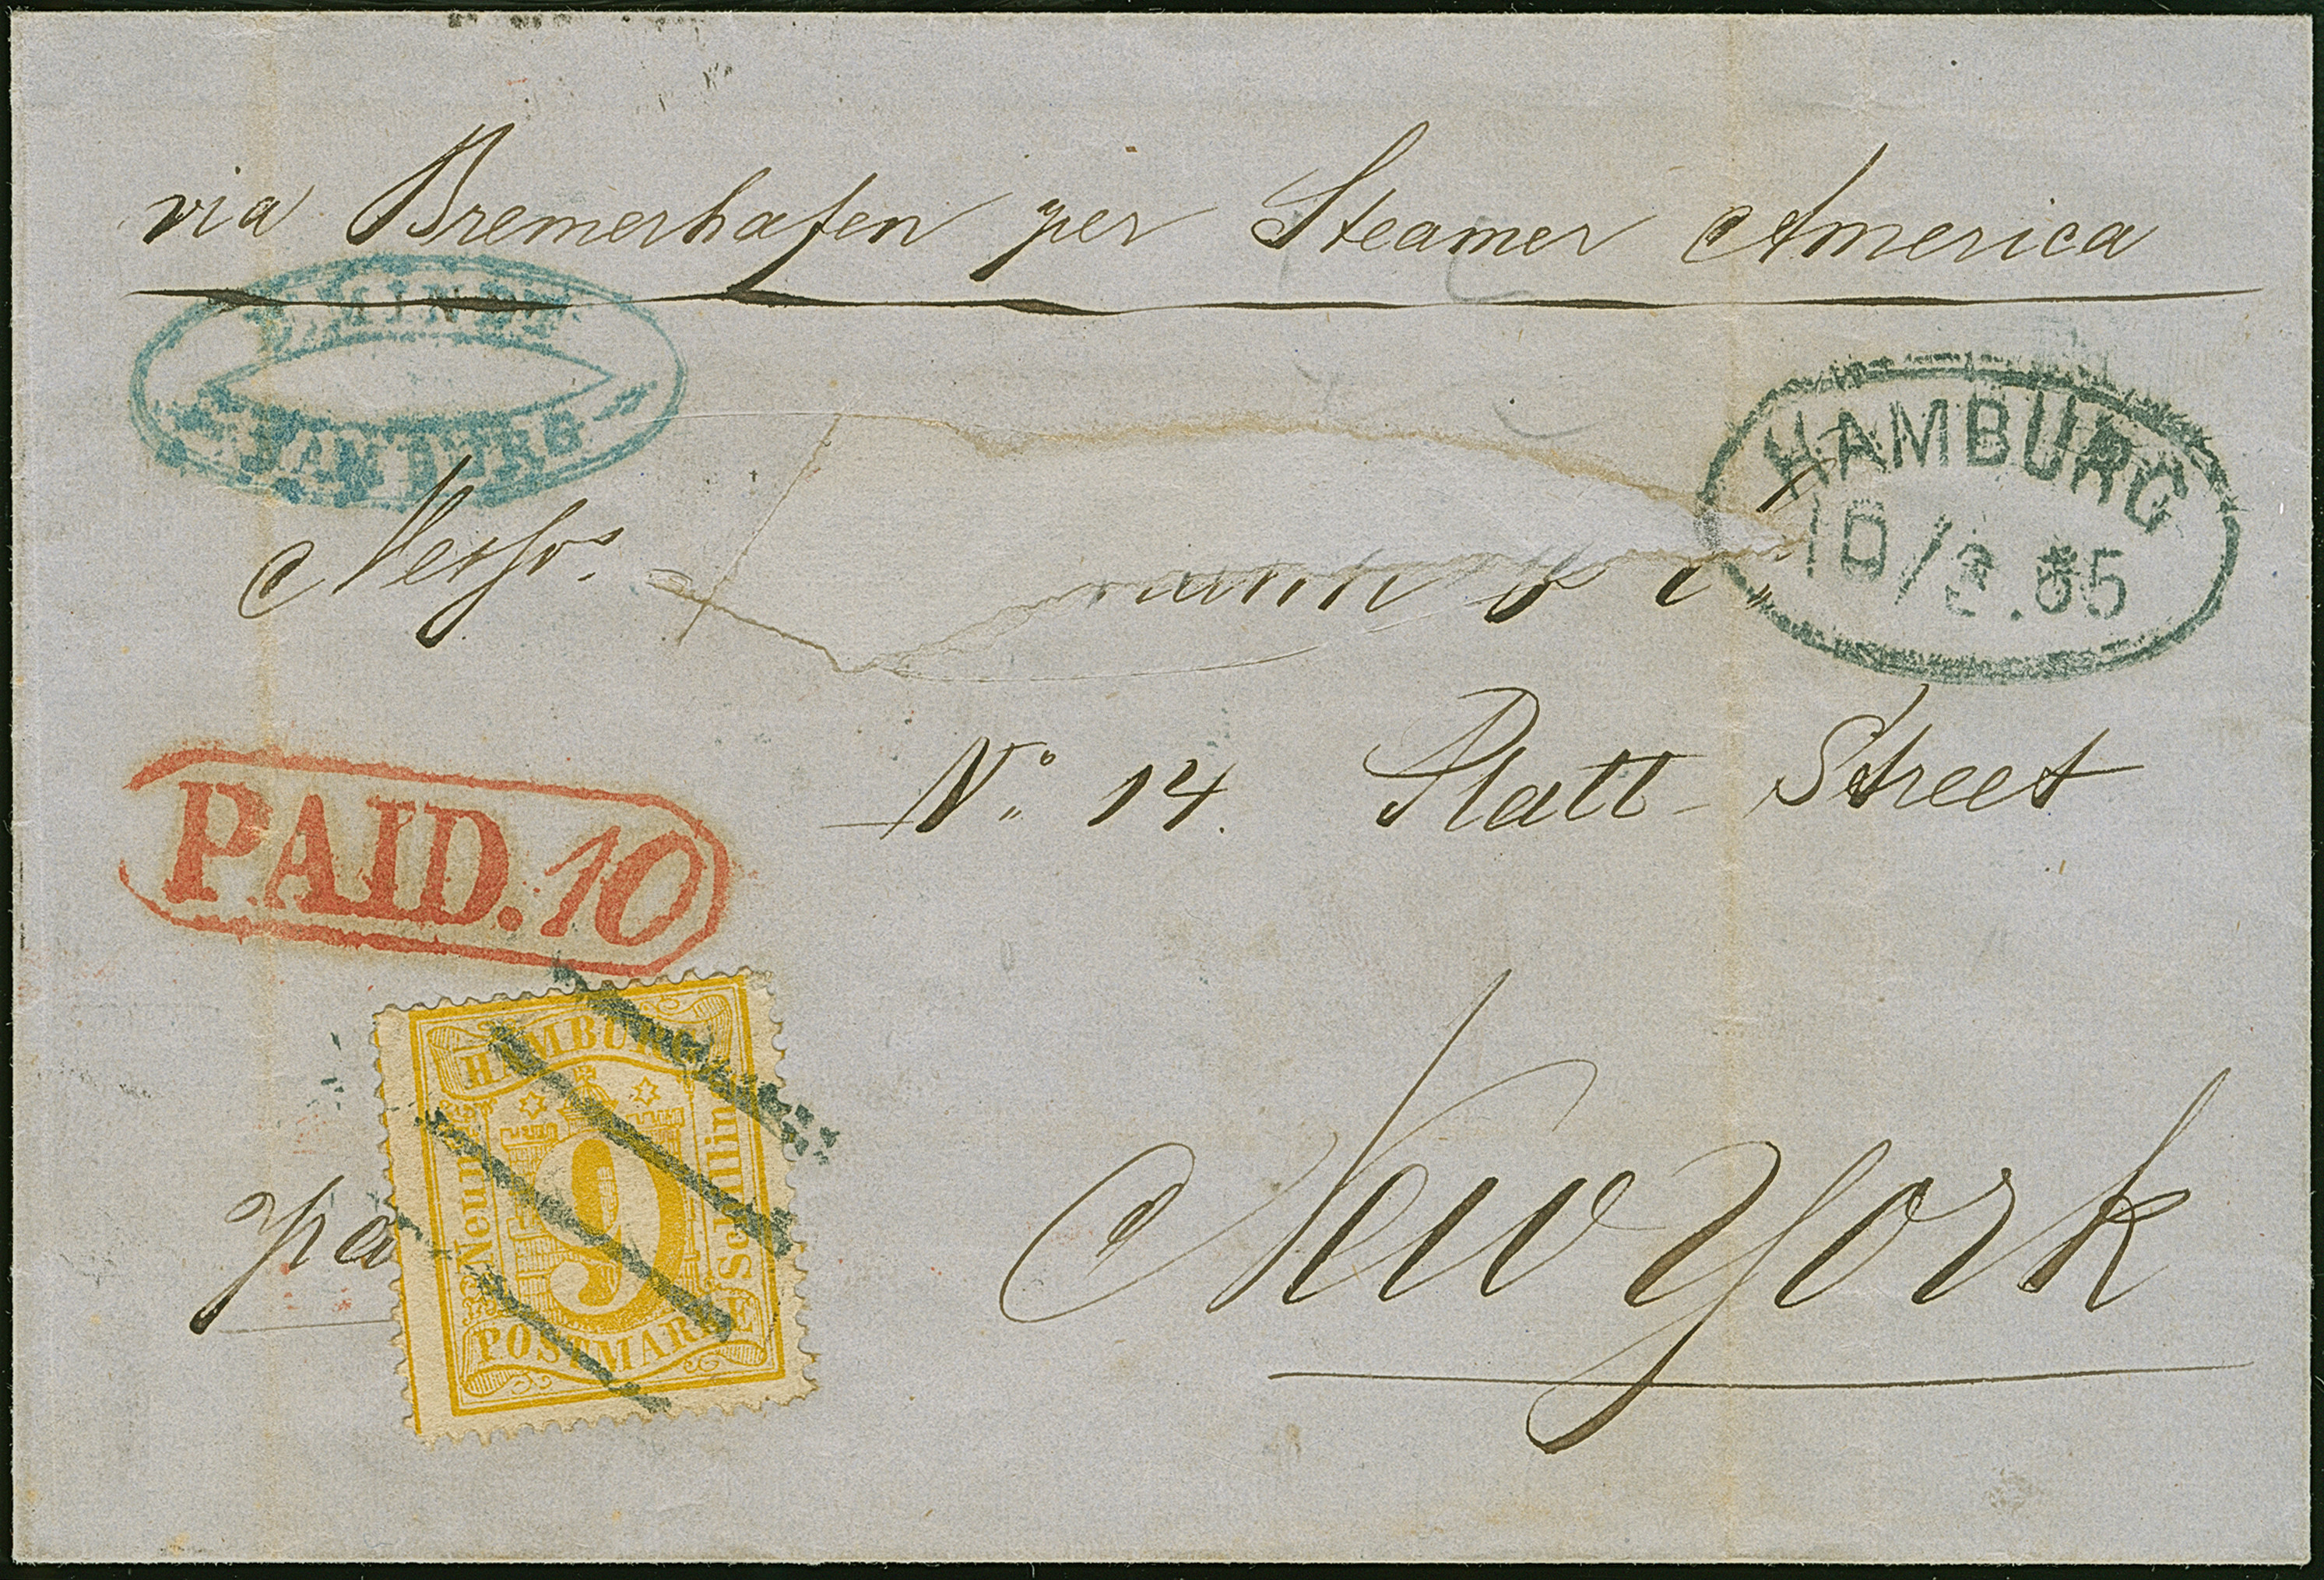 via Bremerhafen per Steamer America
HAMBURG
HAMBURG
Messrs.
&
No. 14. Platt Street
PAID. 10
HAMBURG
Neun
9
Schilling
POSTMARKE
pa
New York